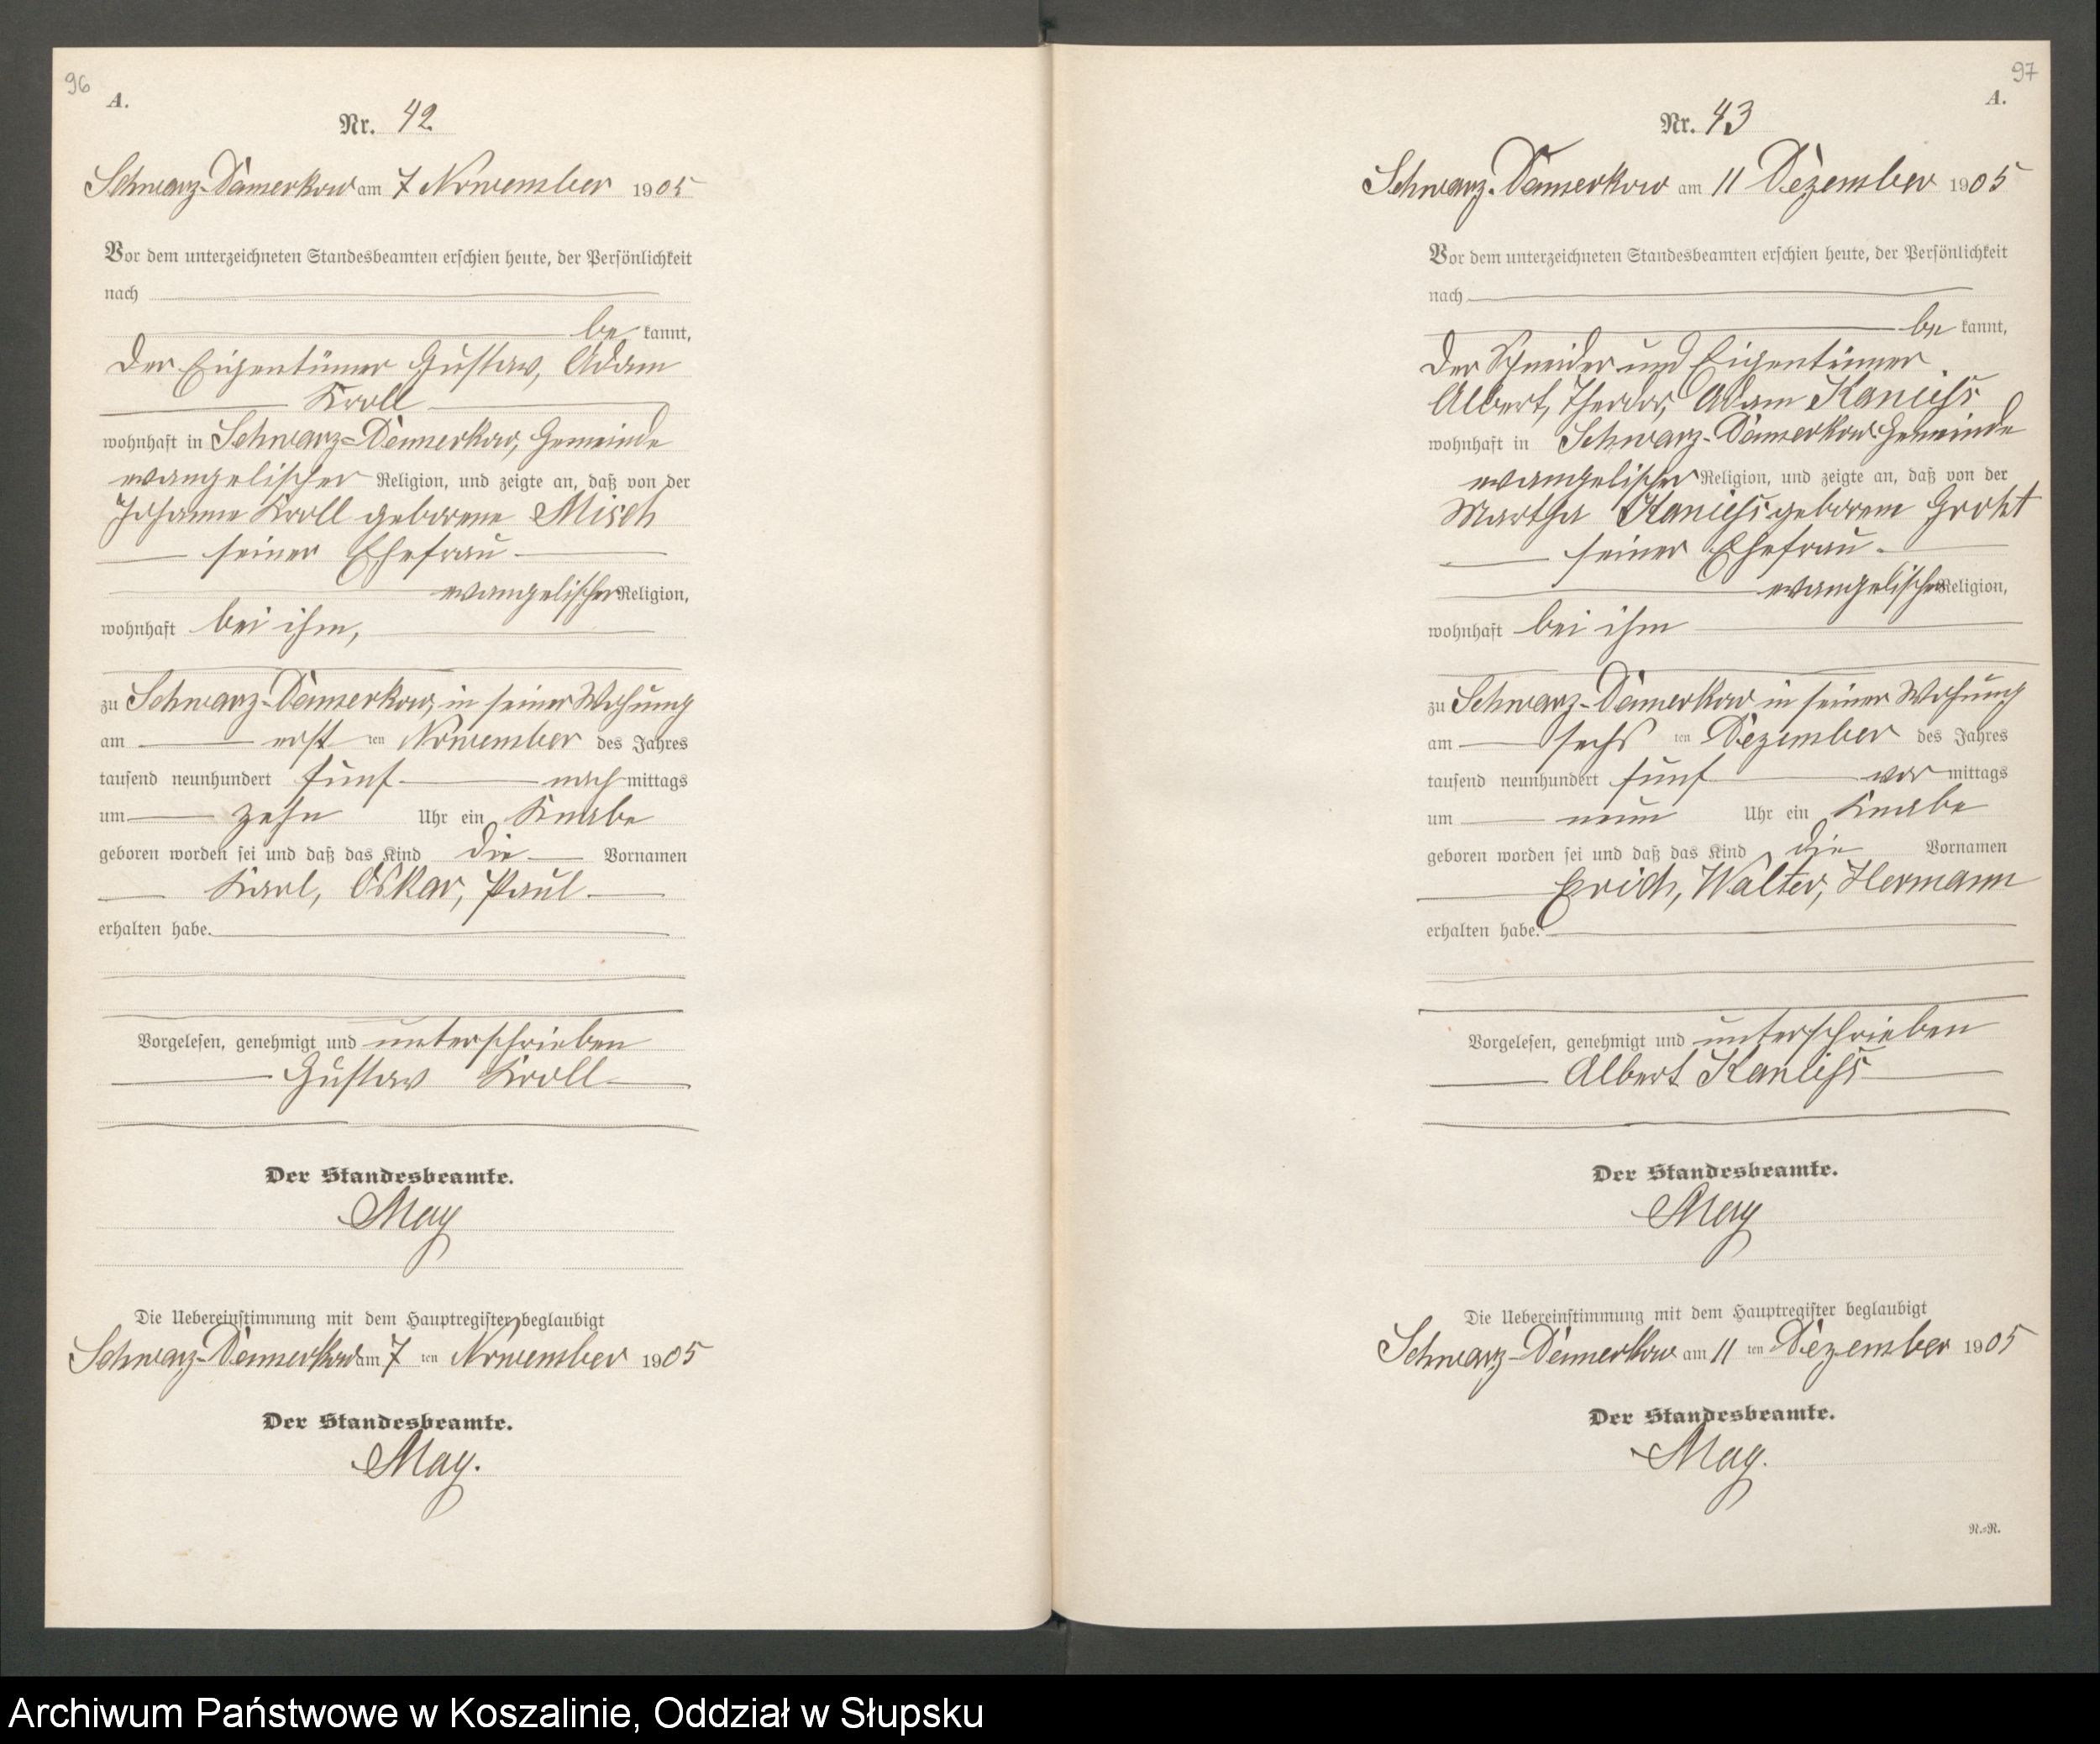 96
A.
Nr. 42.
Schwarz-Damerkow am 7 November 1905
Vor dem unterzeichneten Standesbeamten erschien heute, der Persönlichkeit
nach
be kannt,
der Eigentümer Gustav, Adam
Kroll
wohnhaft in Schwarz=Damerkow, Gemeinde
evangelischer Religion, und zeigte an, daß von der
Johanne Kroll geborene Misch
seiner Ehefrau
evangelischer Religion,
wohnhaft bei ihm,
zu Schwarz-Damerkow, in seiner Wohnung
am erst ten November des Jahres
tausend neunhundert fünf nach mittags
um zehn Uhr ein Knabe
geboren worden sei und daß das Kind die Vornamen
Karl, Oskar, Paul
erhalten habe.
Vorgelesen, genehmigt und unterschrieben
Gustav Kroll
Der Standesbeamte.
May
Die Uebereinstimmung mit dem Hauptregister beglaubigt
Schwarz-Damerkow am 7 ten November 1905
Der Standesbeamte.
May.
97
A.
Nr. 43
Schwarz-Damerkow am 11 Dezember 1905
Vor dem unterzeichneten Standesbeamten erschien heute, der Persönlichkeit
nach
be kannt,
der Schneider und Eigentümer
Albert, Theodor, Adam Kaniess
wohnhaft in Schwarz-Damerkow Gemeinde
evangelischer Religion, und zeigte an, daß von der
Martha Kaniess geborene Groht
seiner Ehefrau
evangelischer Religion,
wohnhaft bei ihm
zu Schwarz-Damerkow in seiner Wohnung
am sechs ten Dezember des Jahres
tausend neunhundert fünf vor mittags
um neun Uhr ein Knabe
geboren worden sei und daß das Kind die Vornamen
Erich, Walter, Hermann
erhalten habe.
Vorgelesen, genehmigt und unterschrieben
Albert Kaniess
Der Standesbeamte.
May
Die Uebereinstimmung mit dem Hauptregister beglaubigt
Schwarz-Damerkow am 11 ten Dezember 1905
Der Standesbeamte.
May.
R.=R.
Archiwum Państwowe w Koszalinie, Oddział w Słupsku